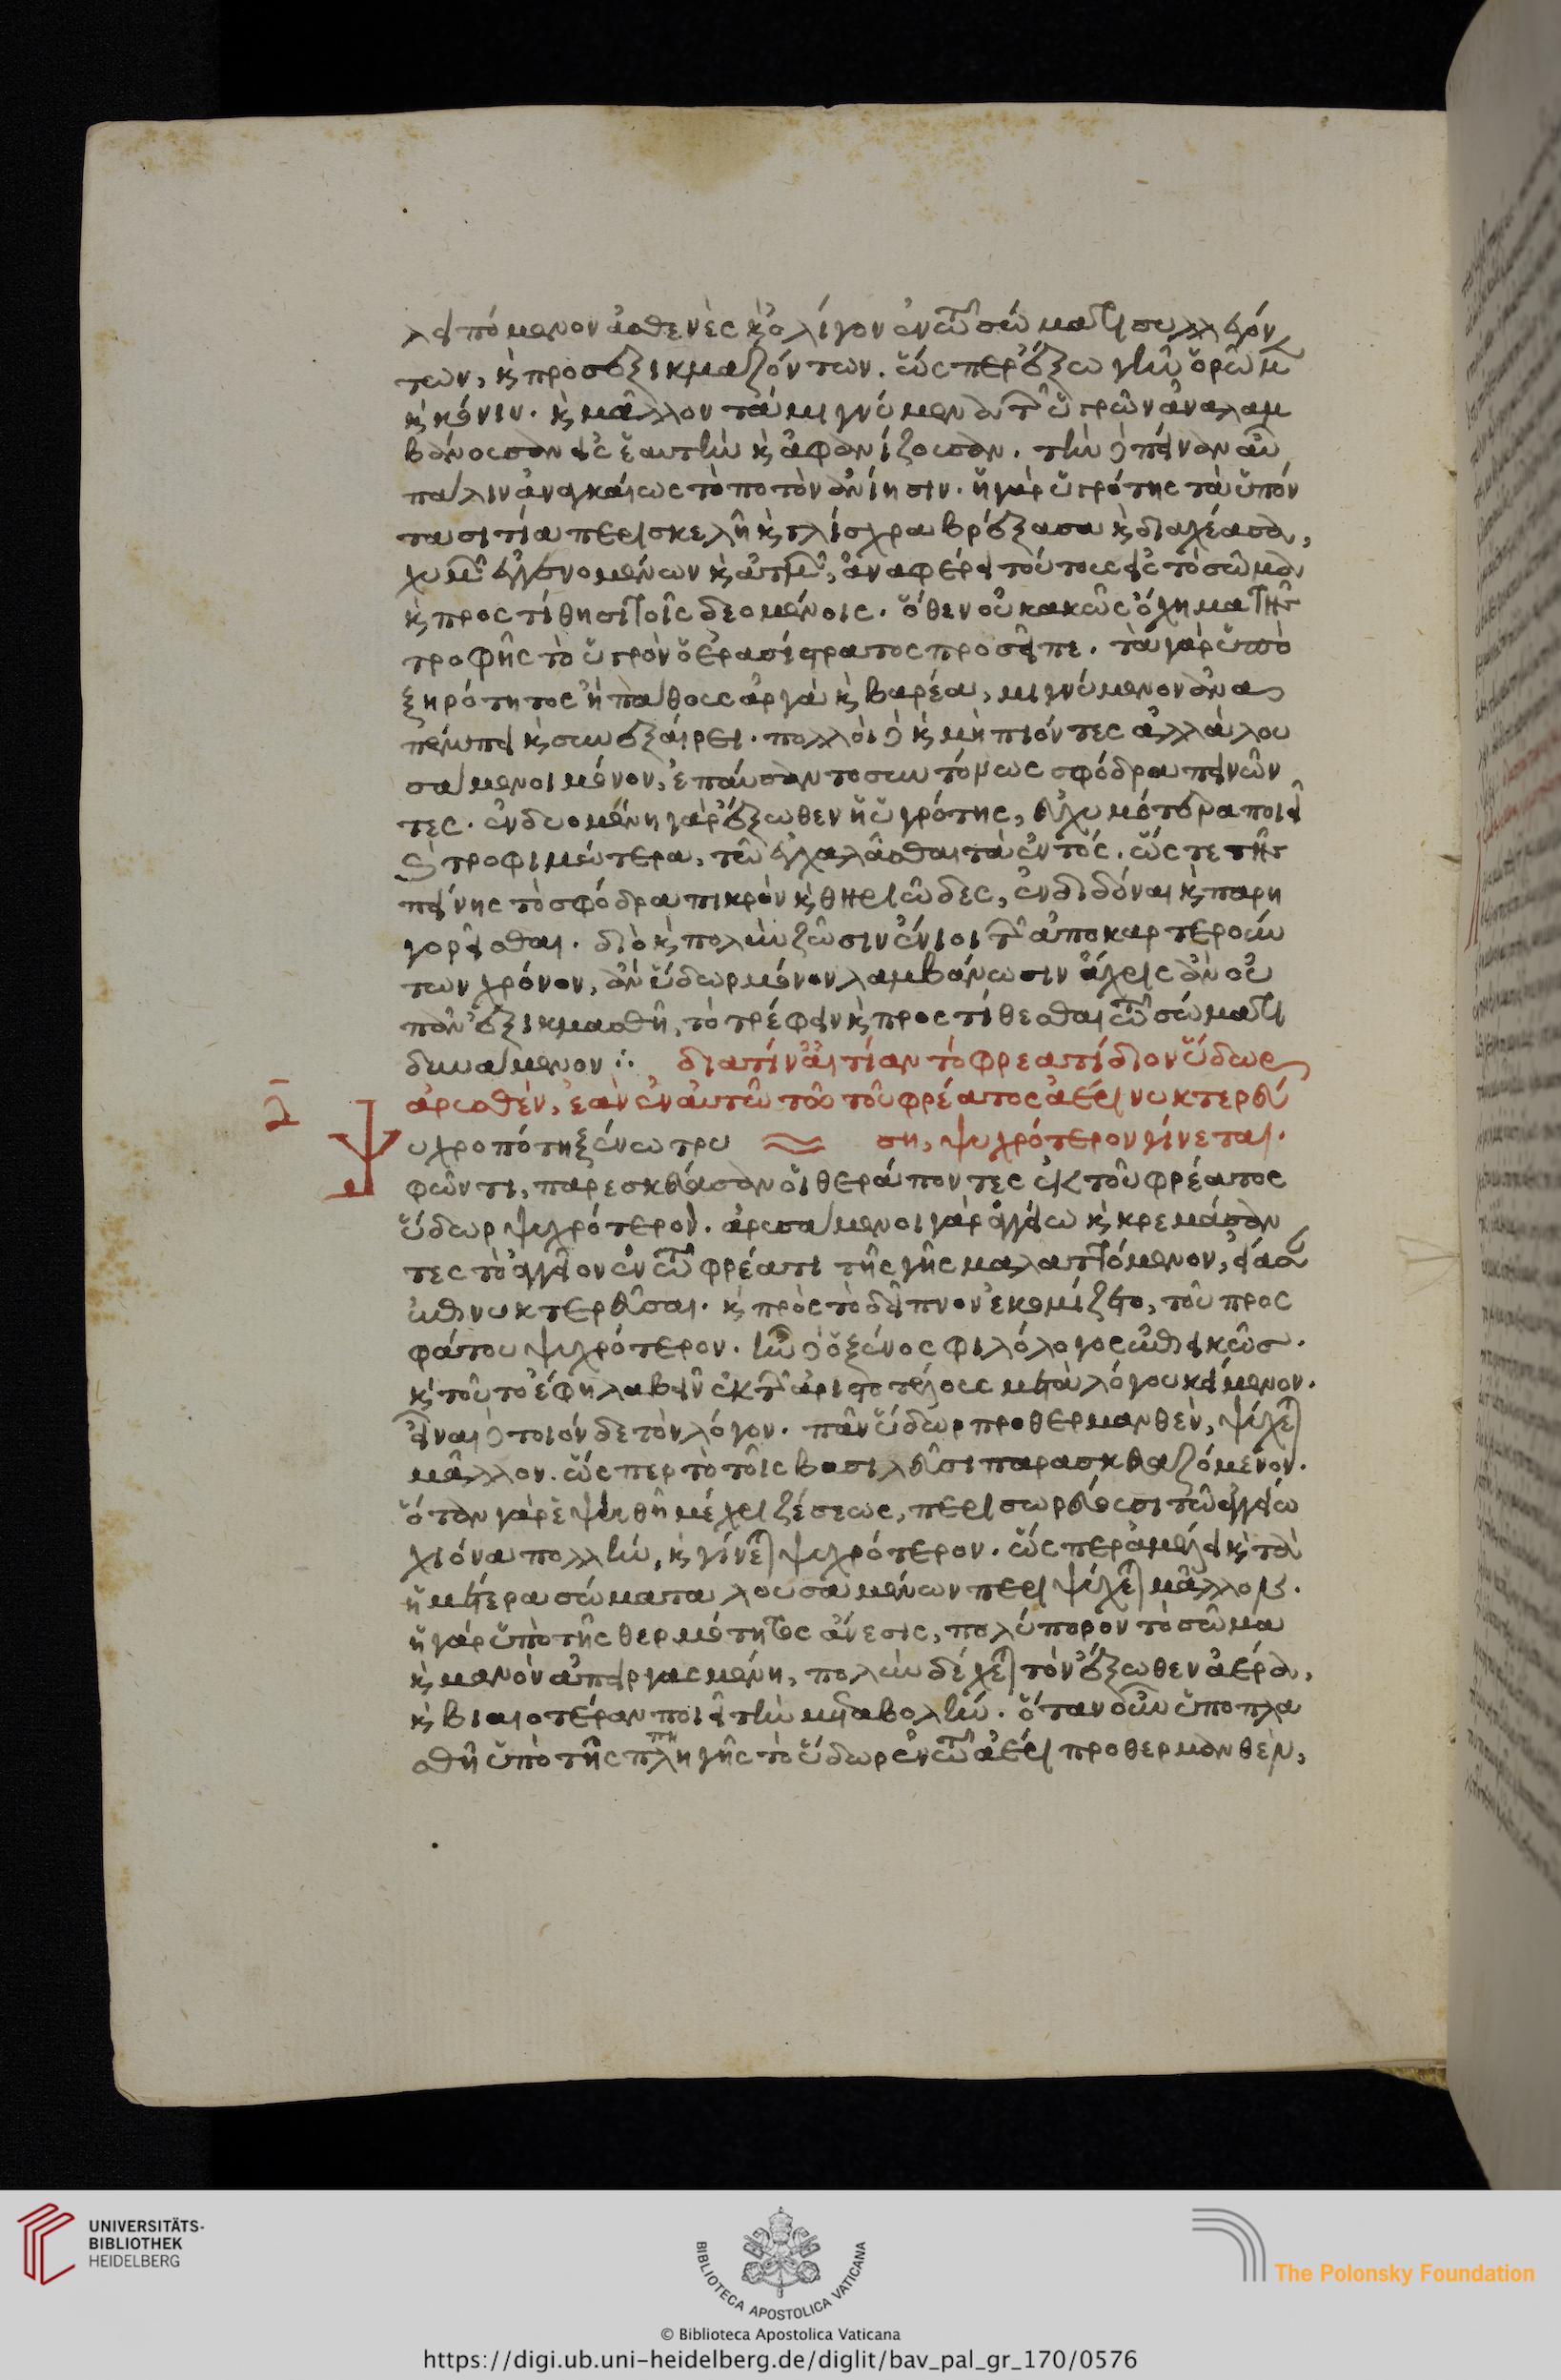 λειπόμενον ἀσθενὲς κ ὀλίγον ἐν τῶ σώματι συλλεγόν
των, κ προσεξικμαζόντων. ὥσπερ ἔξω γῆν ὁρῶμ
κ κόνιν. κ μᾶλλον τὰ μιγνύμενα τῶν ὑγρῶν ἀναλαμ
βάνουσαν εἰς ἑαυτὴν κ ἀφανίζουσαν. τὴν δὲ πεῖναν αὖ
πάλιν ἀναγκαίως τὸ ποτὸν ἀνίησιν. ἡ γὰρ ὑγρότης τὰ ὑπόν
τα σιτία περισκελῆ κ γλίσχρα βρέξασα κ διαχέασα,
χυμῶν ἐγγενομένων κ ἀτμῶν, ἀναφέρει τούτους εἰς τὸ σῶμα
κ προςτίθησι τοῖς δεομένοις. ὅθεν οὐ κακῶς ὄχημα τῆς
τροφῆς τὸ ὑγρὸν ὁ ἐρασίστρατος προσεῖπε. τὰ γὰρ ὑπὸ
ξηρότητος ἢ πάθους ἀργὰ κ βαρέα, μιγνύμενον ἀνα
πέμπει κ συνεξαίρει. πολλοὶ δὲ κ μὴ πιόντες ἀλλὰ λου
σάμενοι μόνον, ἐπαύσαντο συντόμως σφόδρα πεινῶν
τες. ἐνδυομένη γὰρ ἔξωθεν ἡ ὑγρότης, εὐχυμότερα ποιεῖ
κ τροφιμώτερα, τῶ ἐγχαλᾶσθαι τὰ ἐντός. ὥστε τῆς
πείνης τὸ σφόδρα πικρὸν κ θηριῶδες, ἐνδιδόναι κ παρη
γορεῖσθαι. διὸ κ πολὺν ζῶσιν ἔνιοι τῶν ἀποκαρτερούν
των χρόνον, ἂν ὕδωρ μόνον λαμβάνωσιν ἄχρις ἂν οὗ
πᾶν ἐξικμασθῆ, τὸ τρέφειν κ προςτίθεσθαι τῶ σώματι
δυνάμενον ∴ διατίν' αἰτίαν τὸ φρεατίδιον ὕδωρ
δ̄ ἀρυσθέν, ἐὰν ἐν αὐτῶ τῶ τοῦ φρέατος ἀέρι νυκτερεύ
Ψυχροπότη ξένω τρυ ση, ψυχρότερον γίνεται.
φῶντι, παρεσκεύασαν οἱ θεράποντες ἐκ τοῦ φρέατος
ὕδωρ ψυχρότερον. ἀρυσάμενοι γὰρ ἀγγείω κ κρεμάσαν
τες τὸ ἀγγεῖον ἐν τῶ φρέατι τῆς γῆς μαλαπτόμενον, εἴασ
ἐννυκτερεῦσαι. κ πρὸς τὸ δεῖπνον ἐκομίζετο, τοῦ προς
φάτου ψυχρότερον. ἦν δὲ ὁ ξένος φιλόλογος ἐπιεικῶς.
κ τοῦτο ἔφη λαβεῖν ἐκ τῶν ἀριστοτέλους μετὰ λόγου κείμενον.
εἶναι δὲ τοιόνδε τὸν λόγον. πᾶν ὕδωρ προθερμανθὲν, ψύχεται
μᾶλλον. ὥσπερ τὸ τοῖς βασιλεῦσι παρασκευαζόμενον.
ὅταν γὰρ ἑψηθῆ μέχρι ζέσεως, περισωρεύουσι τῶ ἀγγείω
χιόνα πολλὴν, κ γίνεται ψυχρότερον. ὥσπερ ἀμέλει κ τὰ
ἡμέτερα σώματα λουσαμένων περιψύχεται μᾶλλον.
ἡ γὰρ ὑπὸ τῆς θερμότητος ἄνεσις, πολύπορον τὸ σῶμα
κ μανὸν ἀπεργασμένη, πολὺν δέχεται τὸν ἔξωθεν ἀέρα,
κ βιαιοτέραν ποιεῖ τὴν μεταβολήν. ὅταν οὖν ὑποπλα
σθῆ ὑπὸ τῆς πληγῆς τὸ ὕδωρ ἐν τῶ ἀέρι προθερμανθὲν,
UNIVERSITÄTS-
BIBLIOTHEK
HEIDELBERG
BIBLIOTECA APOSTOLICA VATICANA
The Polonsky Foundation
© Biblioteca Apostolica Vaticana
https://digi.ub.uni-heidelberg.de/diglit/bav_pal_gr_170/0576